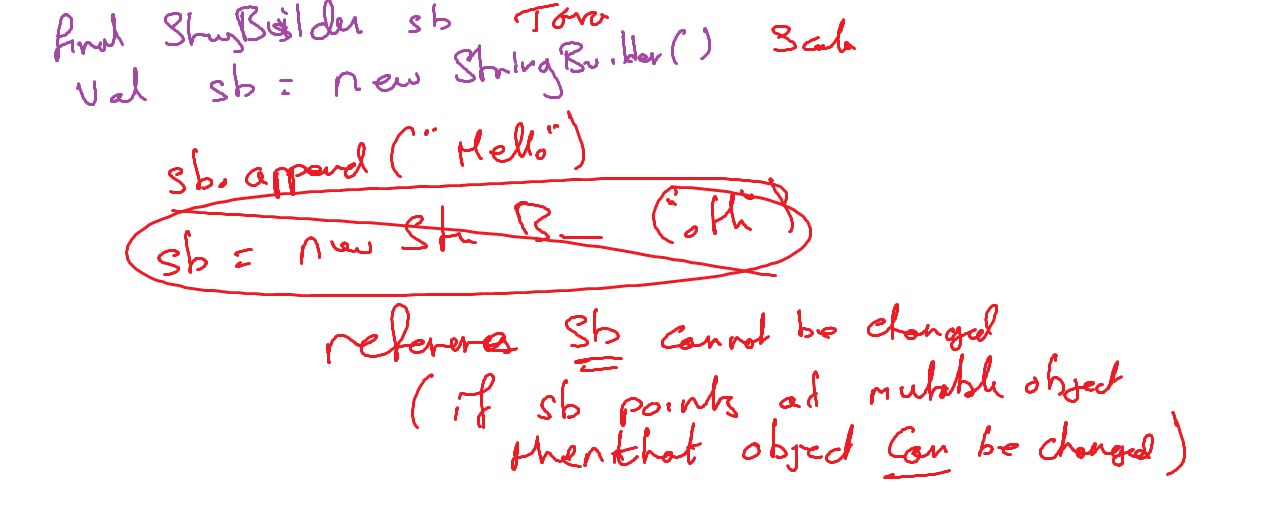 final StringBuilder sb Java
val sb = new StringBuilder() Scala
sb.append("Hello")
sb = new Str B_ ("oth")
reference sb cannot be changed
(if sb points at mutable object
then that object can be changed)